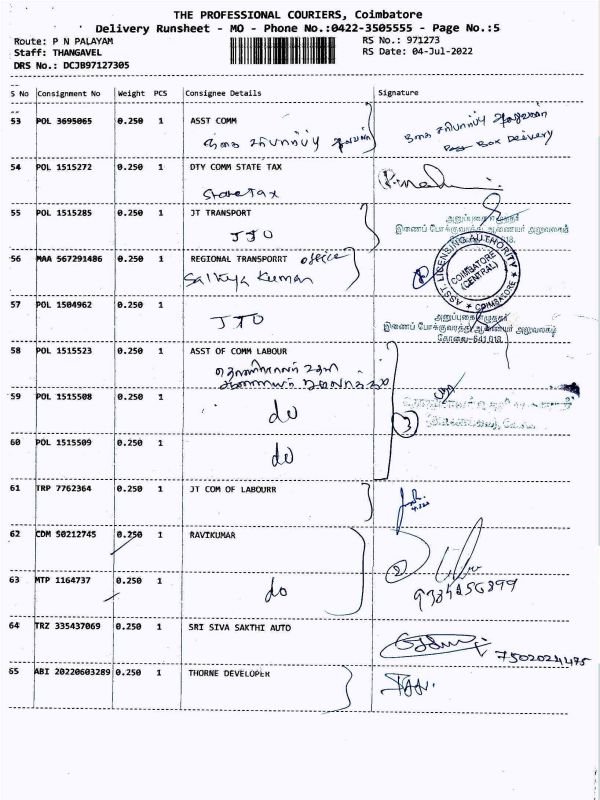 THE PROFESSIONAL COURIERS, Coimbatore
Delivery Runsheet - MO - Phone No.:0422-3505555 - Page No.:5
Route: P N PALAYAM
Staff: THANGAVEL
DRS No.: DCJB97127305
RS No.: 971273
RS Date: 04-Jul-2022
S No Consignment No Weight PCS Consignee Details Signature
53 POL 3695065 0.250 1 ASST COMM
Post Box Delivery
54 POL 1515272 0.250 1 DTY COMM STATE TAX
State Tax
55 POL 1515285 0.250 1 JT TRANSPORT
JTO
இணைப் போக்குவரத்து ஆணையர் அலுவலகம்
56 MAA 567291486 0.250 1 REGIONAL TRANSPORRT office
Sathya Kumar
ASST. LICENSING AUTHORITY
COIMBATORE
(CENTRAL)
COIMBATORE
57 POL 1504962 0.250 1
JTO
இணைப் போக்குவரத்து ஆணையர் அலுவலகம்
கோவை-641 018.
58 POL 1515523 0.250 1 ASST OF COMM LABOUR
59 POL 1515508 0.250 1
do
3
60 POL 1515509 0.250 1
do
61 TRP 7762364 0.250 1 JT COM OF LABOURR
62 CDM 50212745 0.250 1 RAVIKUMAR
2
63 MTP 1164737 0.250 1
do
64 TRZ 335437069 0.250 1 SRI SIVA SAKTHI AUTO
65 ABI 20220603289 0.250 1 THORNE DEVELOPER